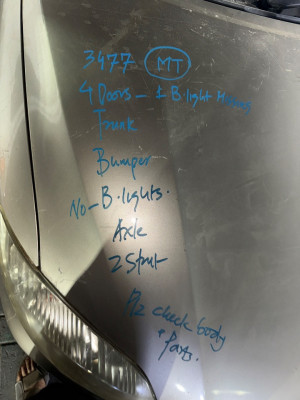 3477 MT
4 Doors - & B light Missing
Trunk
Bumper
No - B.lights.
Axle
2 Strut
Plz check body
& Parts.